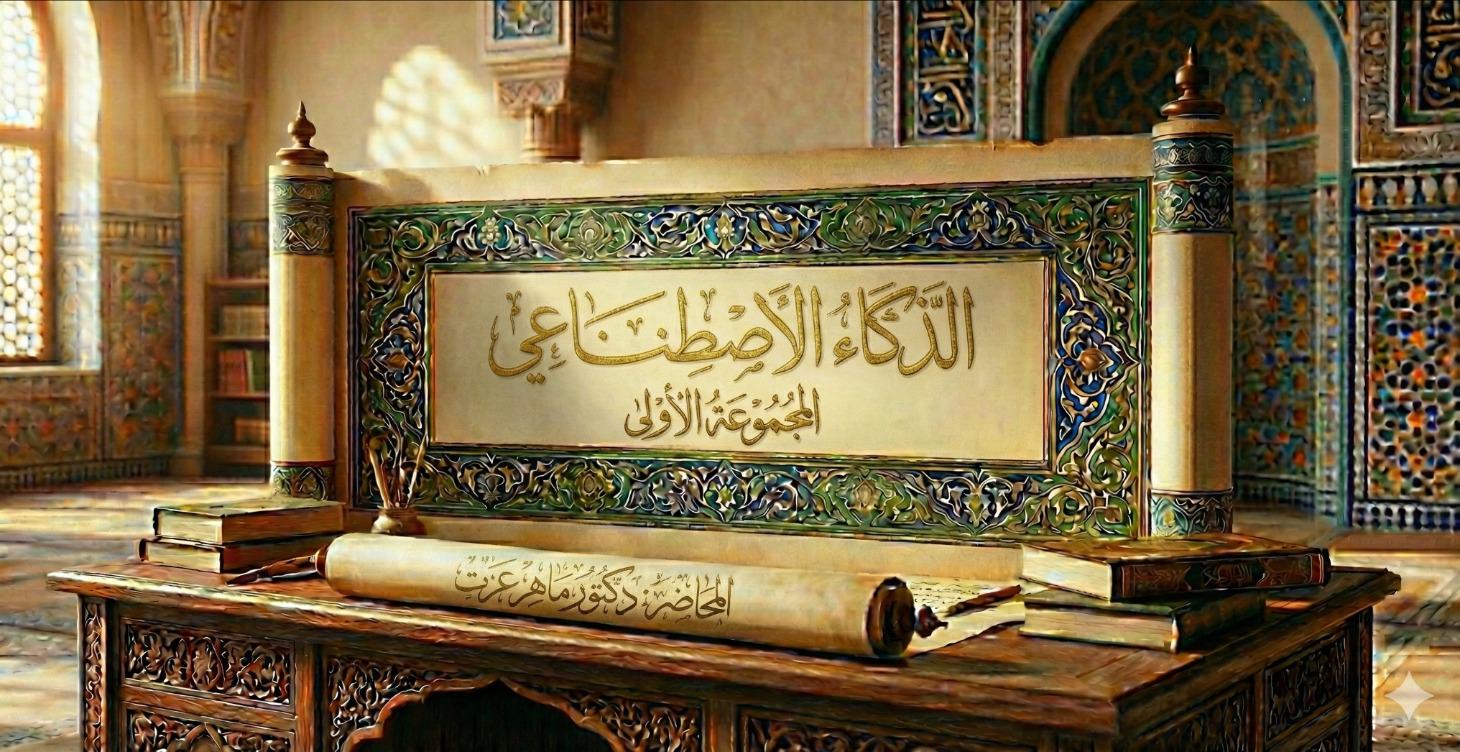 الذَّكَاءُ الْأَصْطِنَاعِي
المَجْمُوُعَةُ الأُولى
المحَاضِرُ: دكْتُورُ مَاهِرْ عِزَتْ